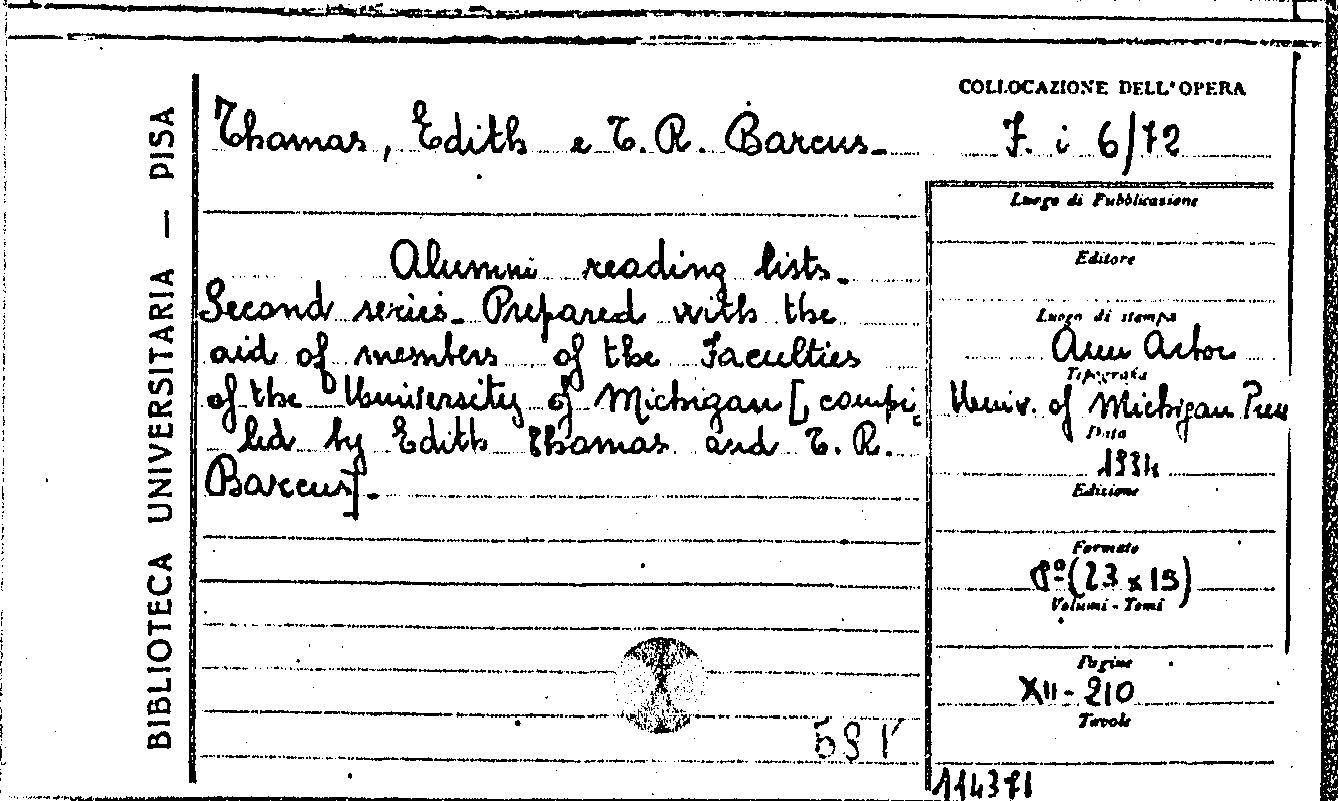 BIBLIOTECA UNIVERSITARIA — PISA
Thomas, Edith e T. R. Barcus.
Alumni reading lists.
Second series. Prepared with the
aid of members of the Faculties
of the University of Michigan [compi
led by Edith Thomas and T. R.
Barcus].
COLLOCAZIONE DELL'OPERA
F. i 6/72
Luogo di Pubblicazione
Editore
Luogo di stampa
Ann Arbor
Tipografia
Univ. of Michigan Press
Data
1934
Edizione
Formato
8º (23 x 15)
Volumi - Tomi
Pagine
XII - 210
Tavole
114371